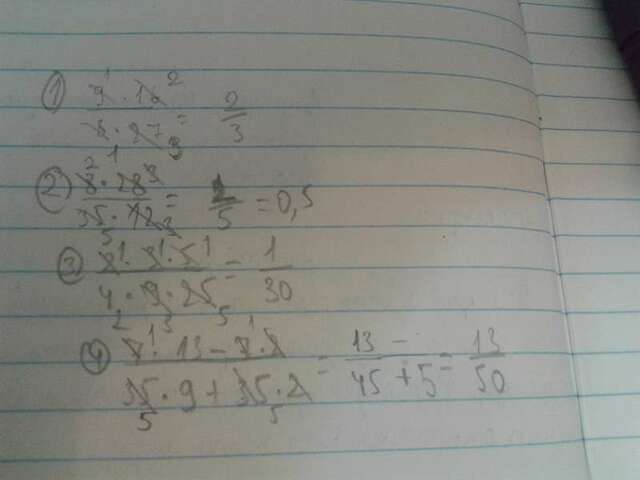 ① 9¹ · 16² / 8₁ · 27₃ = 2/3
② 8² · 28 / 35₅ · 12₃ = 2/5 = 0,5
③ 2¹ · 3¹ · 5¹ / 4₂ · 9₃ · 25₅ = 1/30
④ · 13 - / 35₅ · 9 + 35₅ · 2 = 13 - / 45 + 5 = 13/50